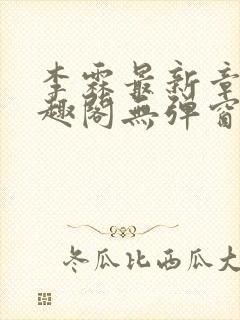 李霖最新章
趣閣無弹窗
冬瓜比西瓜大